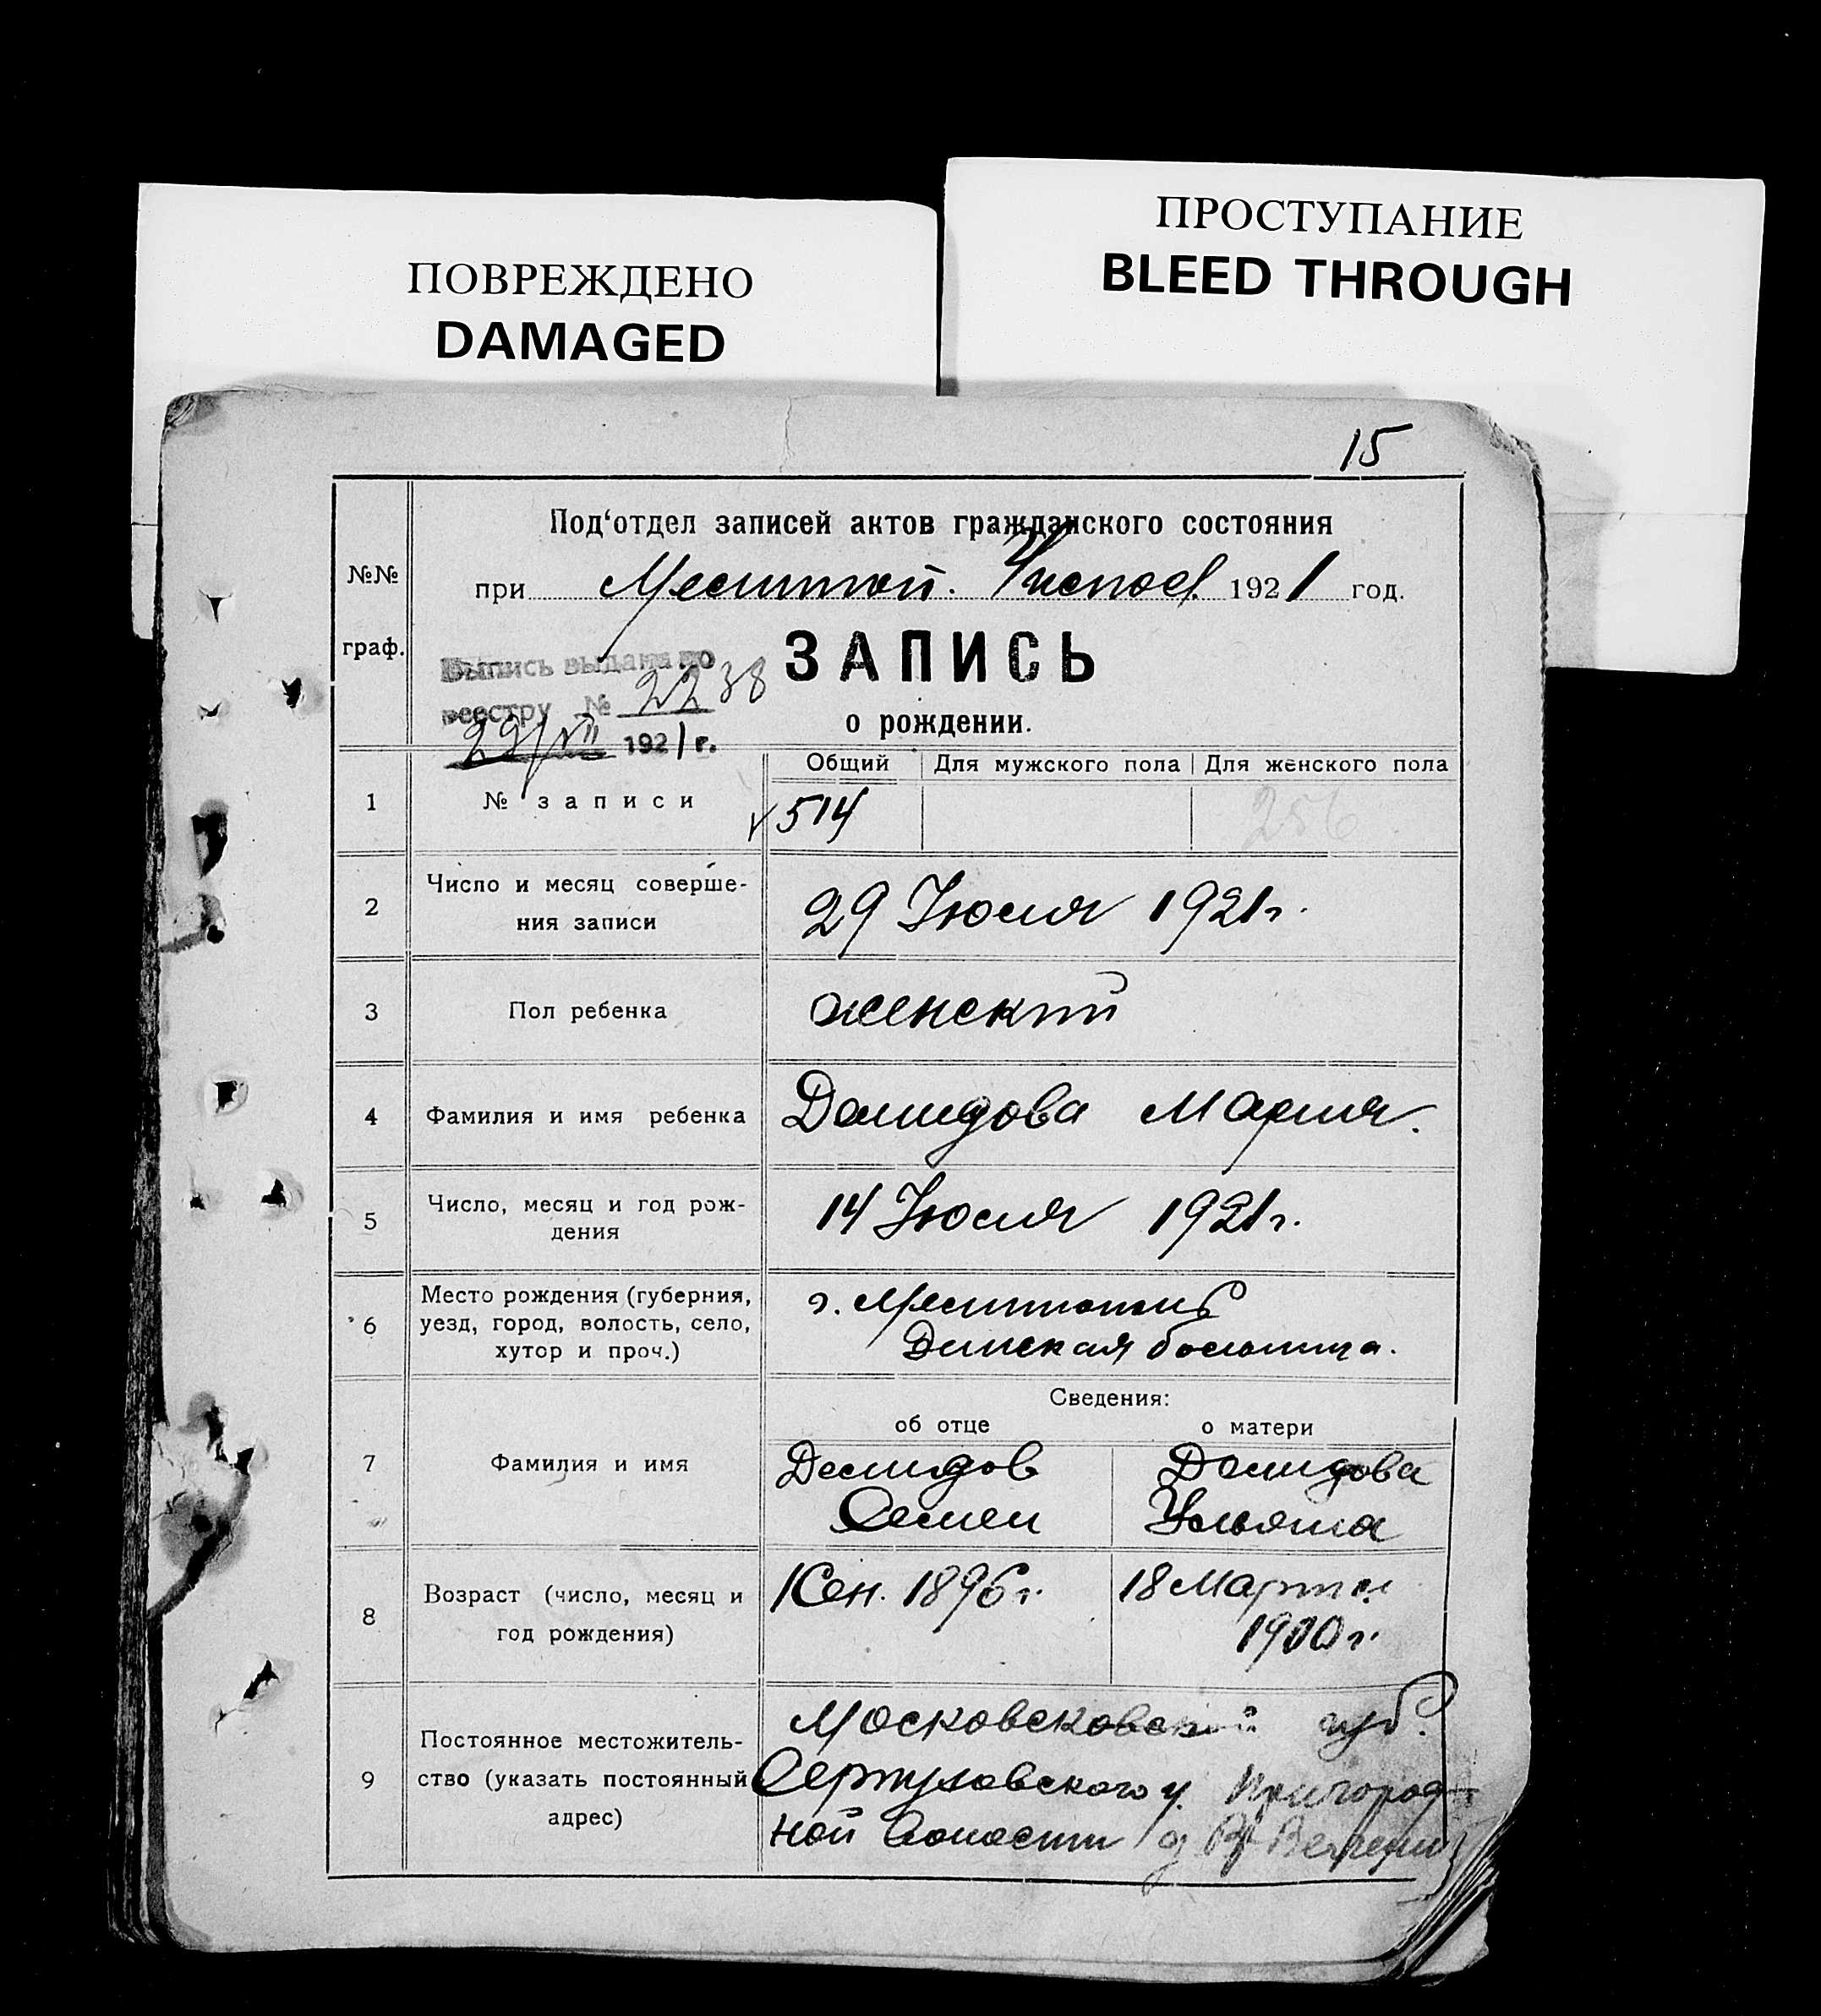 ПОВРЕЖДЕНО
DAMAGED
ПРОСТУПАНИЕ
BLEED THROUGH
15
№№ граф.
Под‘отдел записей актов гражданского состояния
при 1921 год.
ЗАПИСЬ
о рождении.
Выпись выдана по
реестру № 2238
29/VII 1921 г.
Общий Для мужского пола Для женского пола
1 № записи 514 256
2 Число и месяц соверше-
ния записи 29 Июля 1921 г.
3 Пол ребенка женский
4 Фамилия и имя ребенка Демидова Мария.
5 Число, месяц и год рож-
дения 14 Июля 1921 г.
6 Место рождения (губерния,
уезд, город, волость, село,
хутор и проч.) г. Мелитополь
больница.
Сведения:
об отце о матери
7 Фамилия и имя Демидов Демидова
Семен Ульяна
8 Возраст (число, месяц и
год рождения) 1 Сен. 1896 г. 18 Марта
1900 г.
9 Постоянное местожитель-
ство (указать постоянный
адрес) Московсковской губ.
Серпуховского у. Пригород-
ной волости д